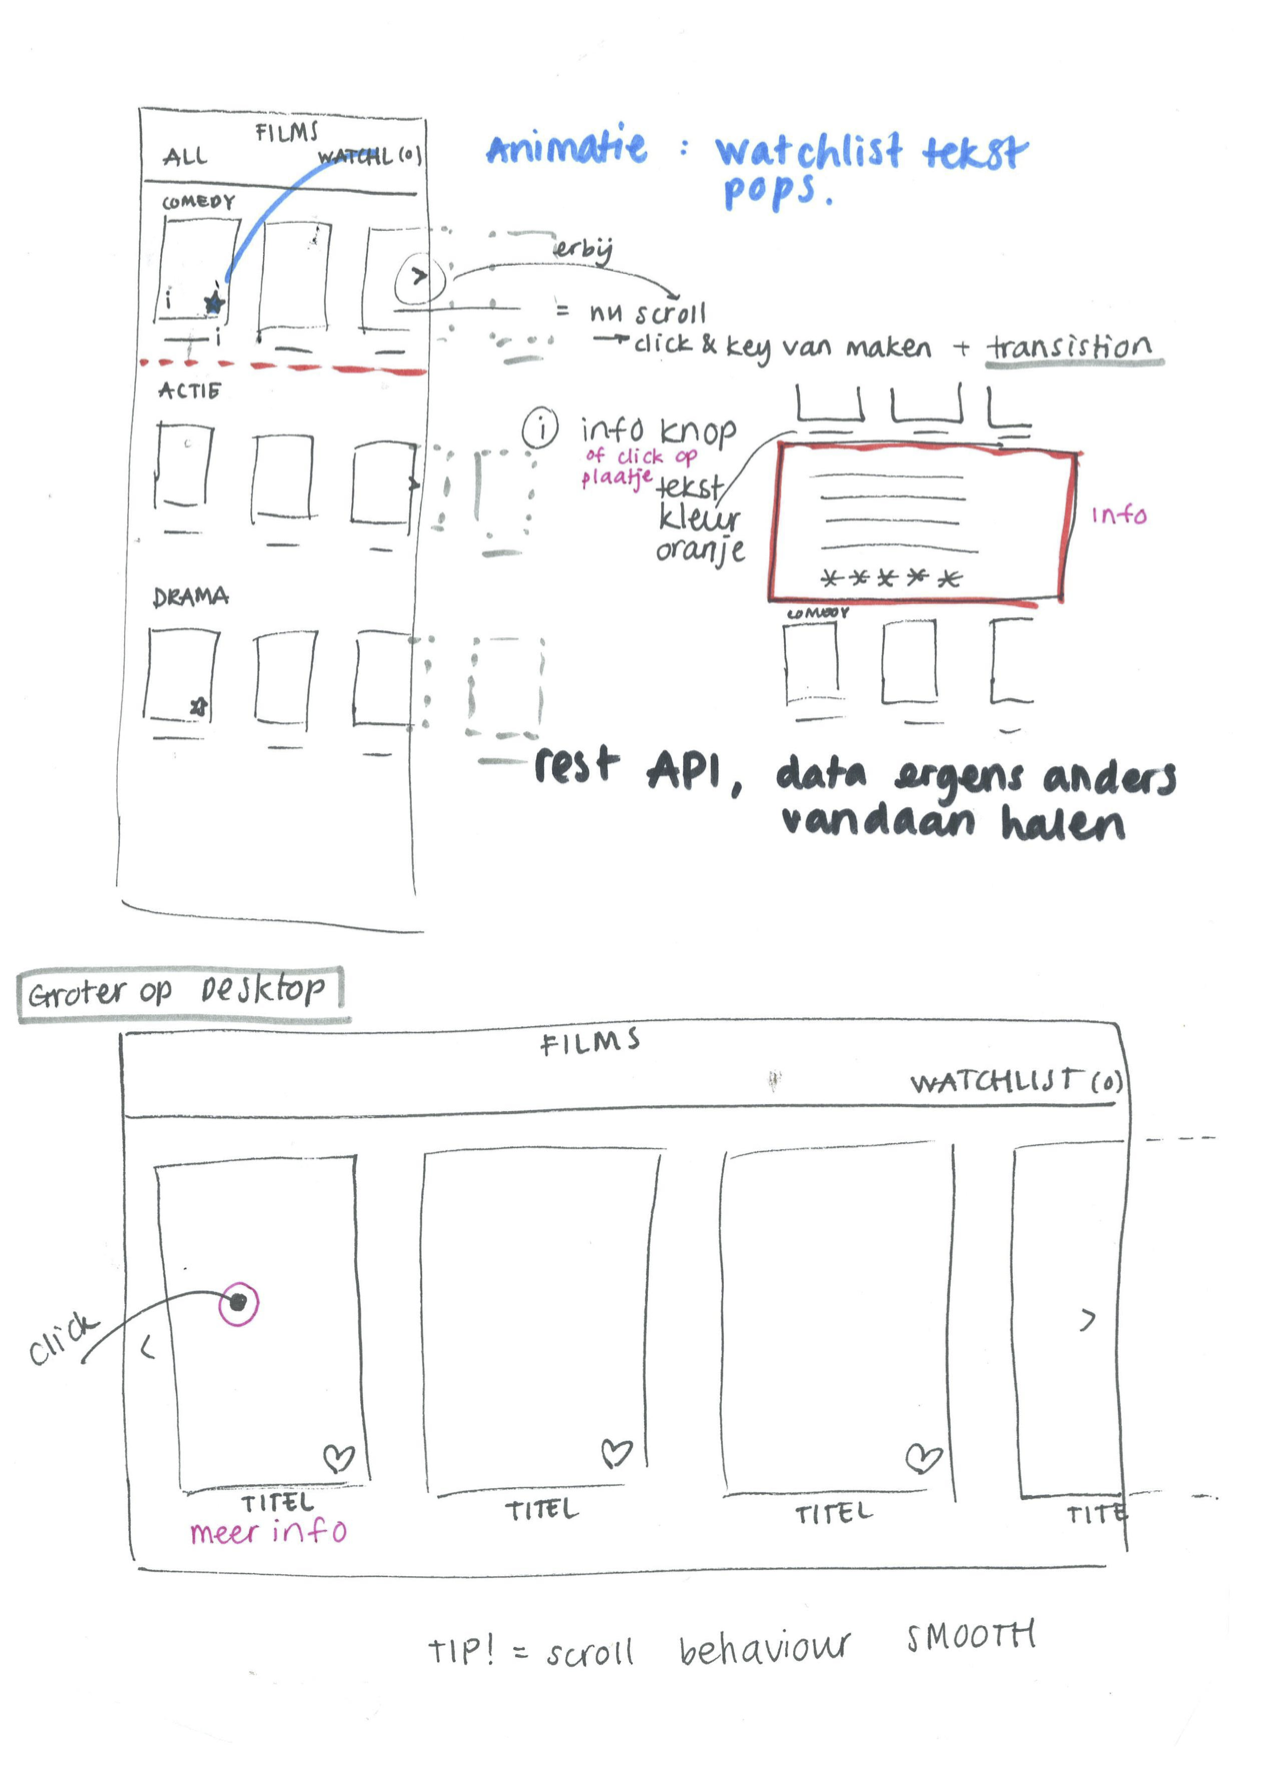 FILMS
ALL
WATCHL (0)
COMEDY
i
i
>
Animatie : watchlist tekst
pops.
erbij
= nu scroll
→ click & key van maken + transistion
ACTIE
>
i info knop
of click op
plaatje
tekst
kleur
oranje
info
COMEDY
DRAMA
rest API, data ergens anders
vandaan halen
Groter op Desktop
FILMS
WATCHLIST (0)
click
<
>
TITEL
TITEL
TITEL
TITE
meer info
TIP! = scroll behaviour SMOOTH